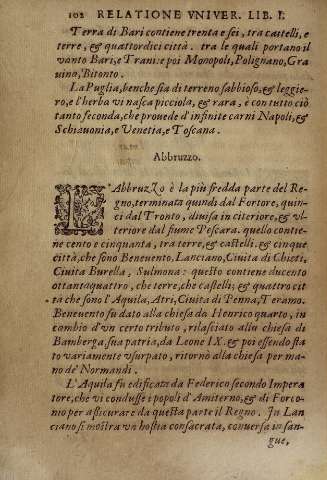 102 RELATIONE VNIVER. LIB. I.
Terra di Bari contiene trenta e sei, tra castelli, e
terre, & quattordici città. tra le quali portano il
vanto Bari, e Trani: e poi Monopoli, Polignano, Gra
uino, Bitonto.
La Puglia, benche sia di terreno sabbioso, & leggie-
ro, e l'herba vi nasca picciola, & rara, è con tutto ciò
tanto feconda, che prouede d'infinite carni Napoli, &
Schiauonia, e Venetia, e Toscana.
Abbruzzo.
L'Abbruzzo è la più fredda parte del Re-
gno, terminata quindi dal Fortore, quin-
ci dal Tronto, diuisa in citeriore, & vl-
teriore dal fiume Pescara. quello contie-
ne cento e cinquanta, tra terre, & castelli, & cinque
città, che sono Beneuento, Lanciano, Ciuita di Chieti,
Ciuita Burella, Sulmona: questo contiene ducento
ottantaquattro, che terre, che castelli; & quattro cit
tà che sono l'Aquila, Atri, Ciuita di Penna, Teramo.
Beneuento fu dato alla chiesa da Henrico quarto, in
cambio d'vn certo tributo, rilasciato alla chiesa di
Bamberga, sua patria, da Leone IX. & poi essendo sta
to variamente vsurpato, ritornò alla chiesa per ma-
no de' Normandi.
L'Aquila fu edificata da Federico secondo Impera
tore, che vi condusse i popoli d'Amiterno, & di Forco-
nio per assicurare da questa parte il Regno. In Lan
ciano si mostra vn hostia consacrata, conuersa in san-
gue,